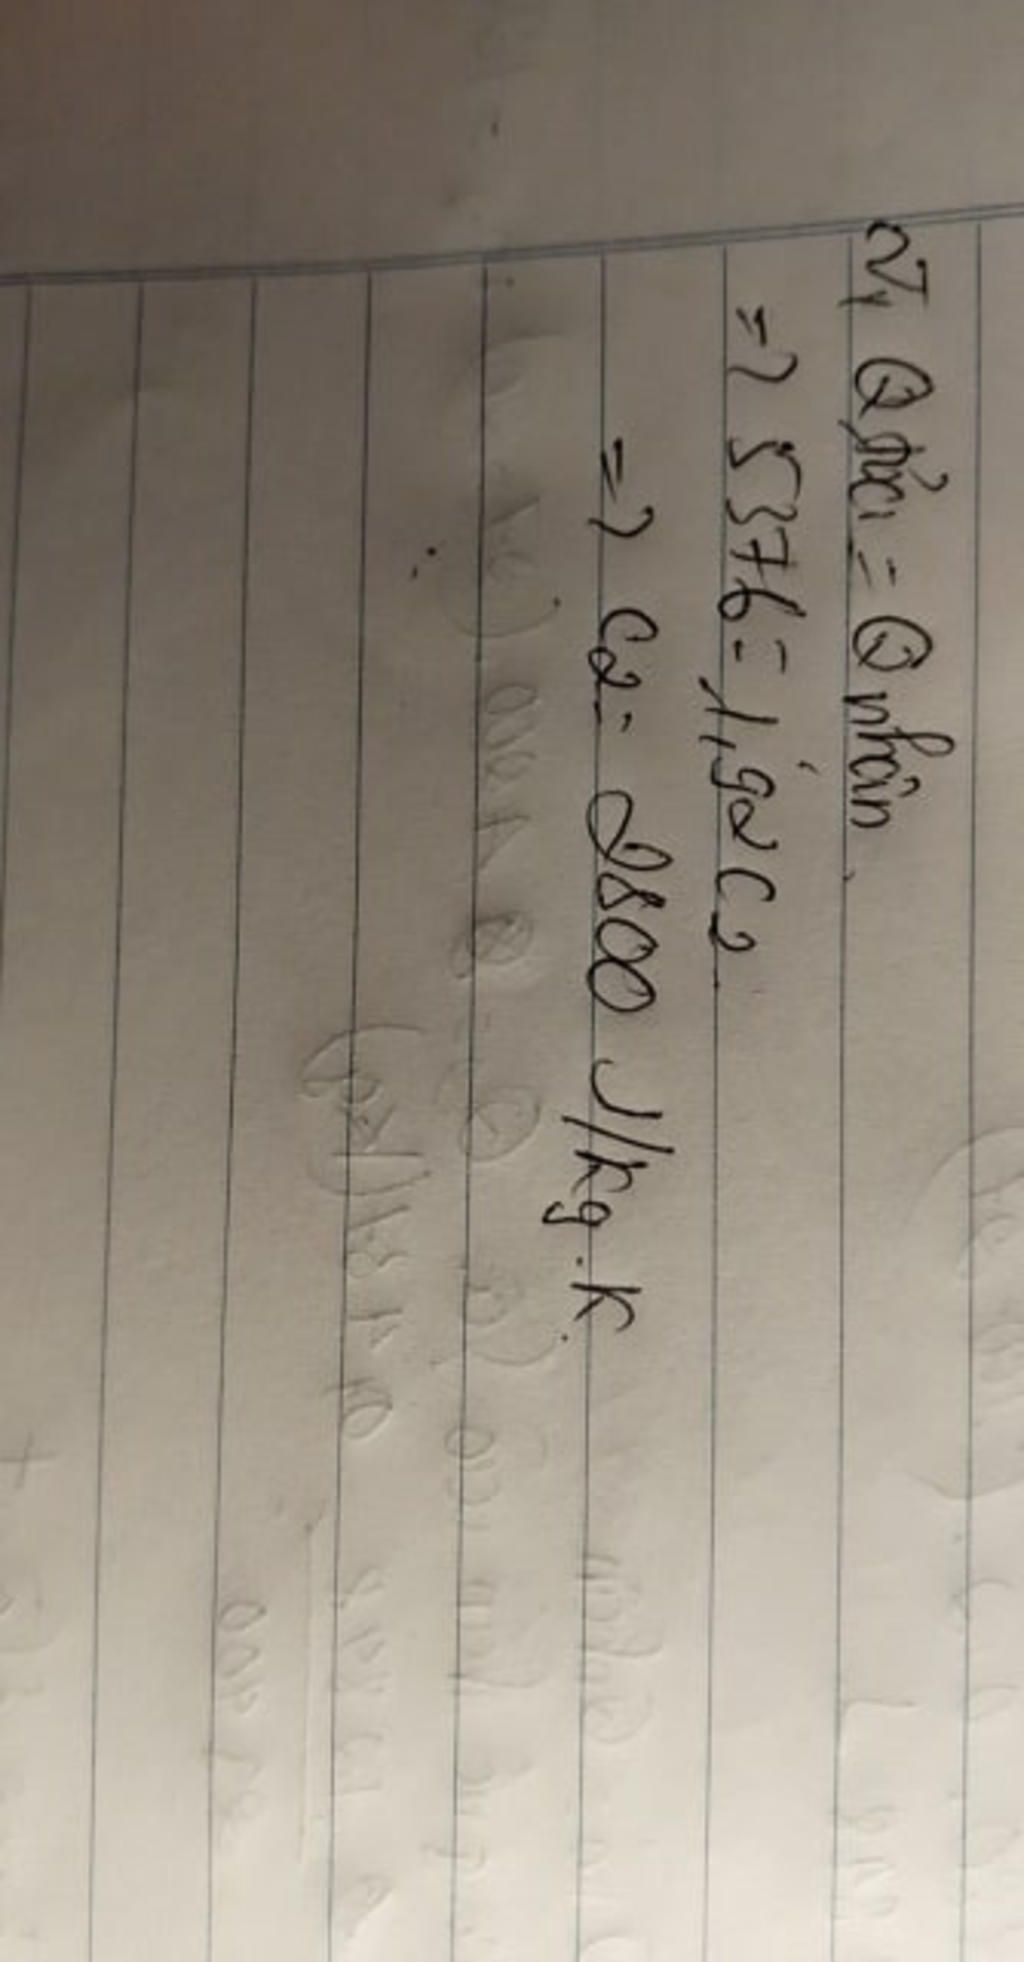 Vì Q tỏa = Q nhận
=> 5376 = 1,92 C2
=> C2 = 2800 J/kg.K